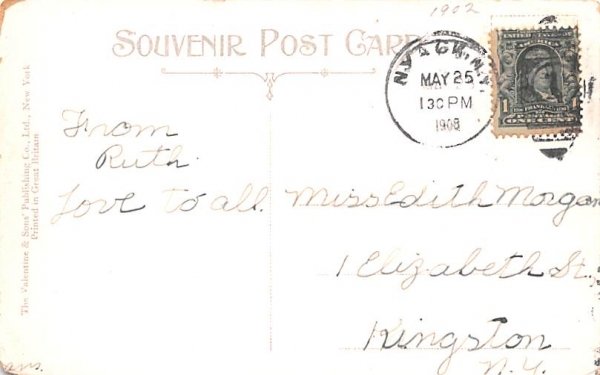 1902
SOUVENIR POST CARD
NYACK, N.Y.
MAY 25
130 PM
1908
UNITED STATES OF
AMERICA
1
ONE CENT
The Valentine & Sons' Publishing Co., Ltd., New York
Printed in Great Britain
From
Ruth.
Love to all.
Miss Edith Morgan
1 Elizabeth St.
Kingston
N.Y.
ans.